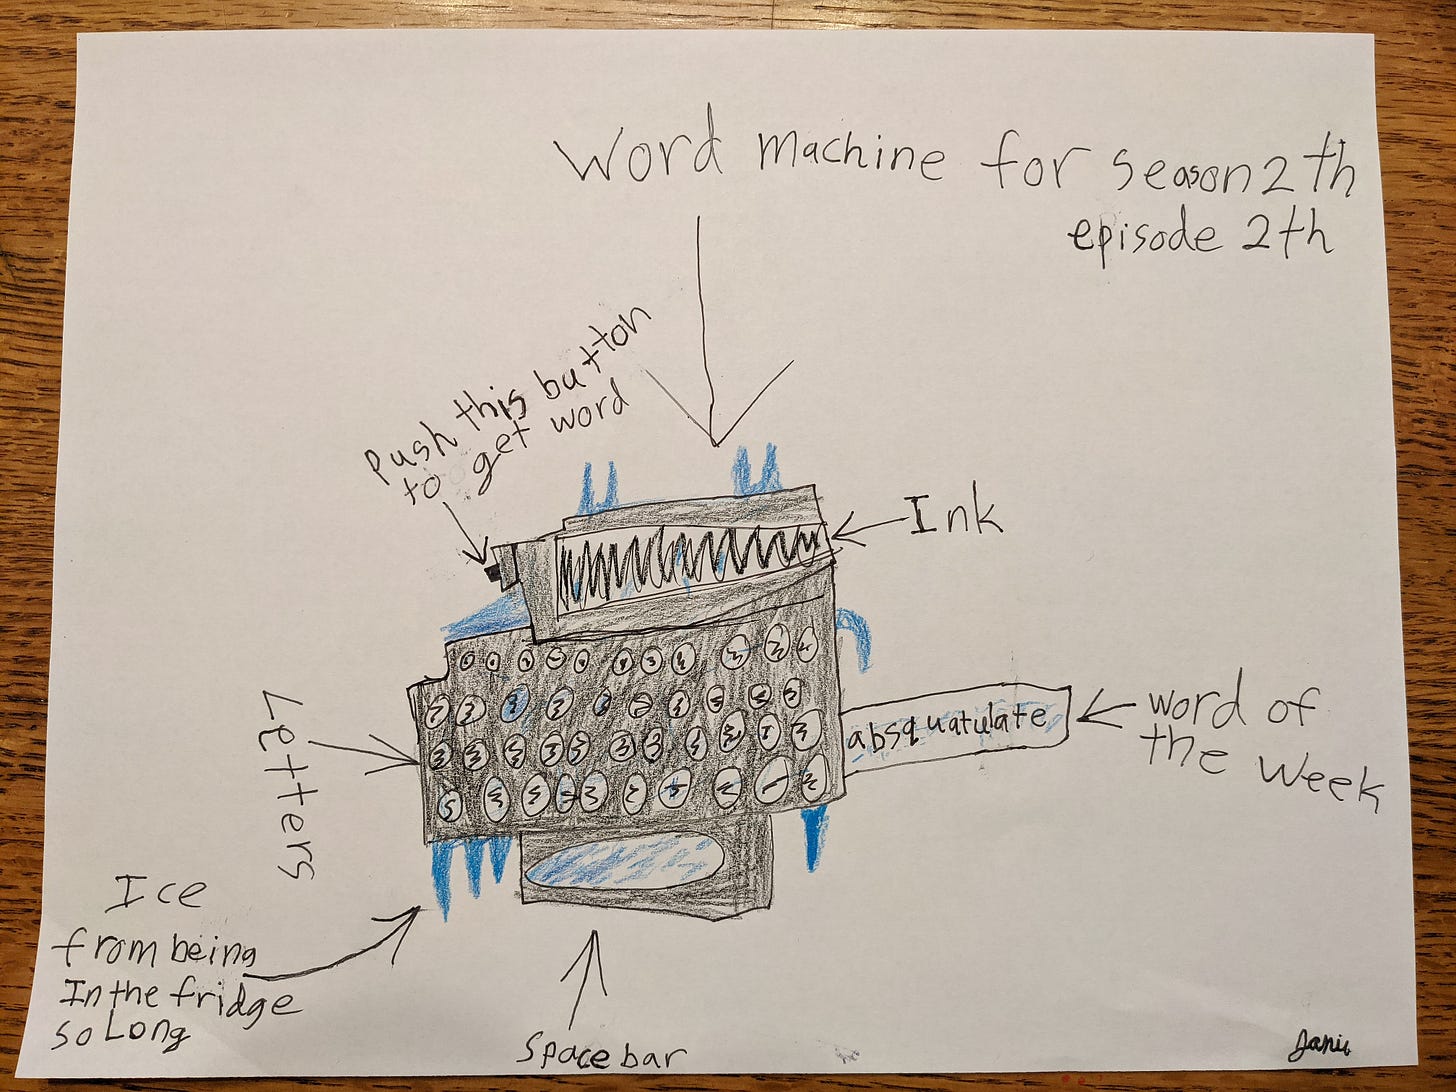 Word machine for season 2th
episode 2th
Push this button
to get word
Ink
Letters
absquatulate
word of
the week
Ice
from being
In the fridge
so Long
Space bar